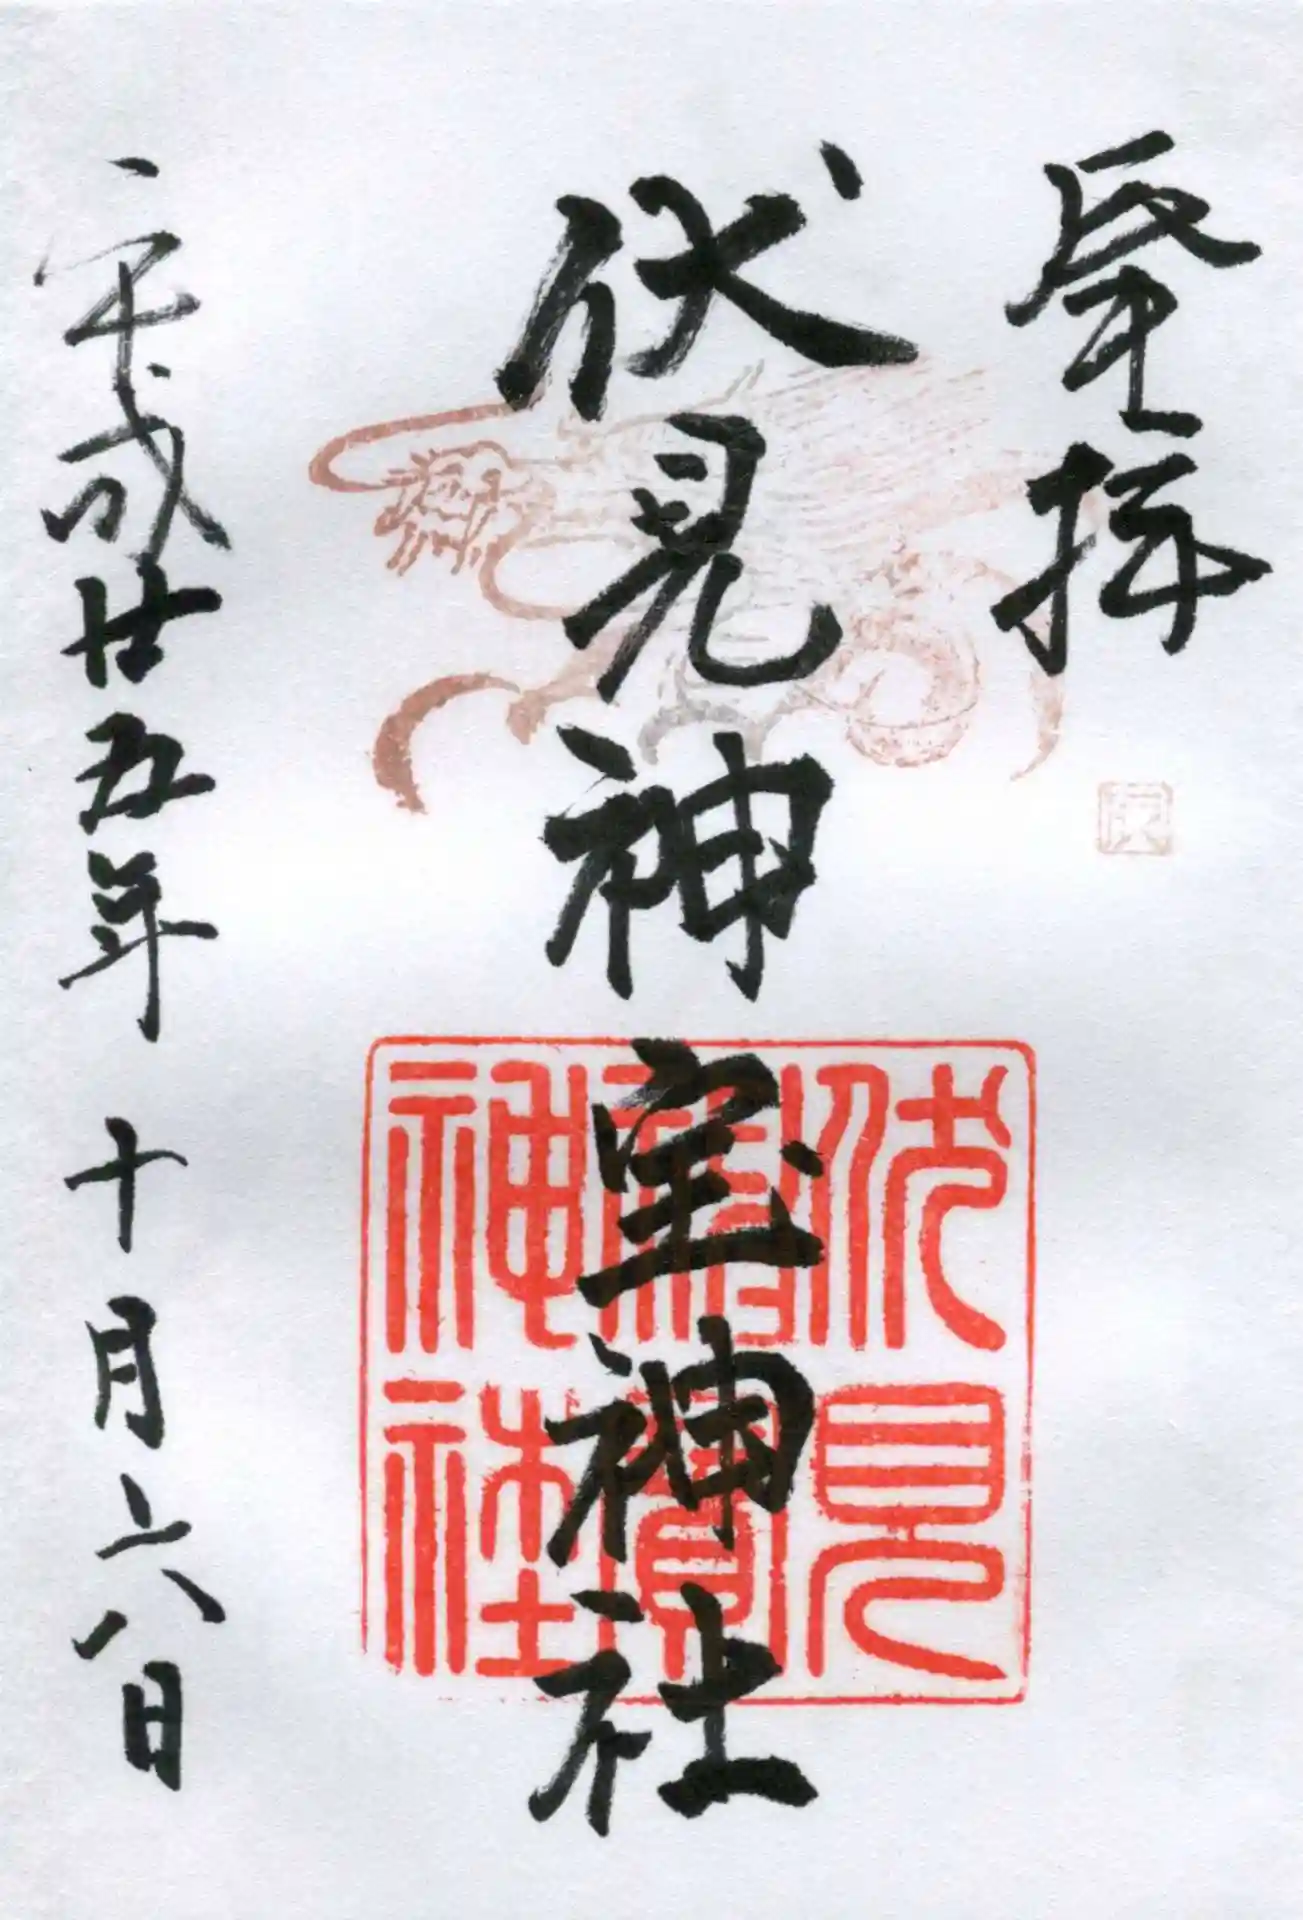 奉拝
伏見神宝神社
平成廿五年 十月六日
伏見
神寶
神社